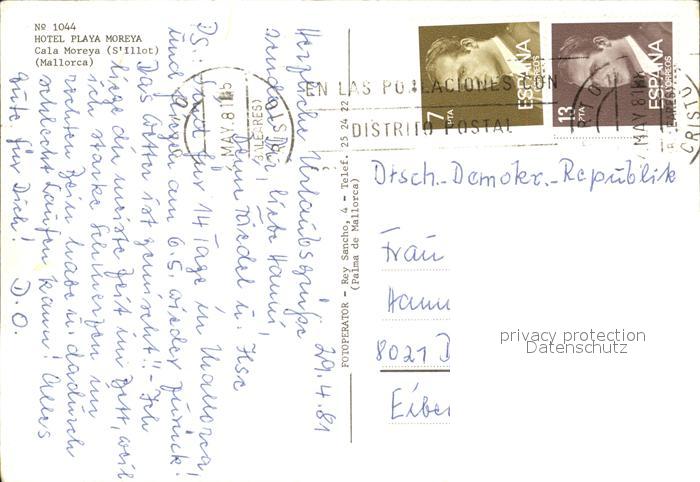 Nº 1044
HOTEL PLAYA MOREYA
Cala Moreya (S'Illot)
(Mallorca)
29.4.81
Herzliche Urlaubsgrüße
sendet Dir, liebe Hanni!
Dein Friedel u. Ilse
PS: Sind für 14 Tage in Mallorca
und fliegen am 6.5. wieder zurück!
Das Wetter ist gemischt!! - Ich
liege die meiste Zeit im Bett, weil
ich starke Schmerzen im
rechten Bein habe u. dadurch
schlecht laufen kann! Alles
Gute für Dich! D.O.
FOTOPERATOR - Rey Sancho, 4 - Telef. 25 24 22
(Palma de Mallorca)
7 PTA
ESPAÑA
CORREOS
13 PTA
ESPAÑA
CORREOS
EN LAS POBLACIONES CON
DISTRITO POSTAL
MAY 81
(BALEARES)
MAY 81
Dtsch.-Demokr.-Republik
Frau
Hann
8021 D
Eiber
privacy protection
Datenschutz